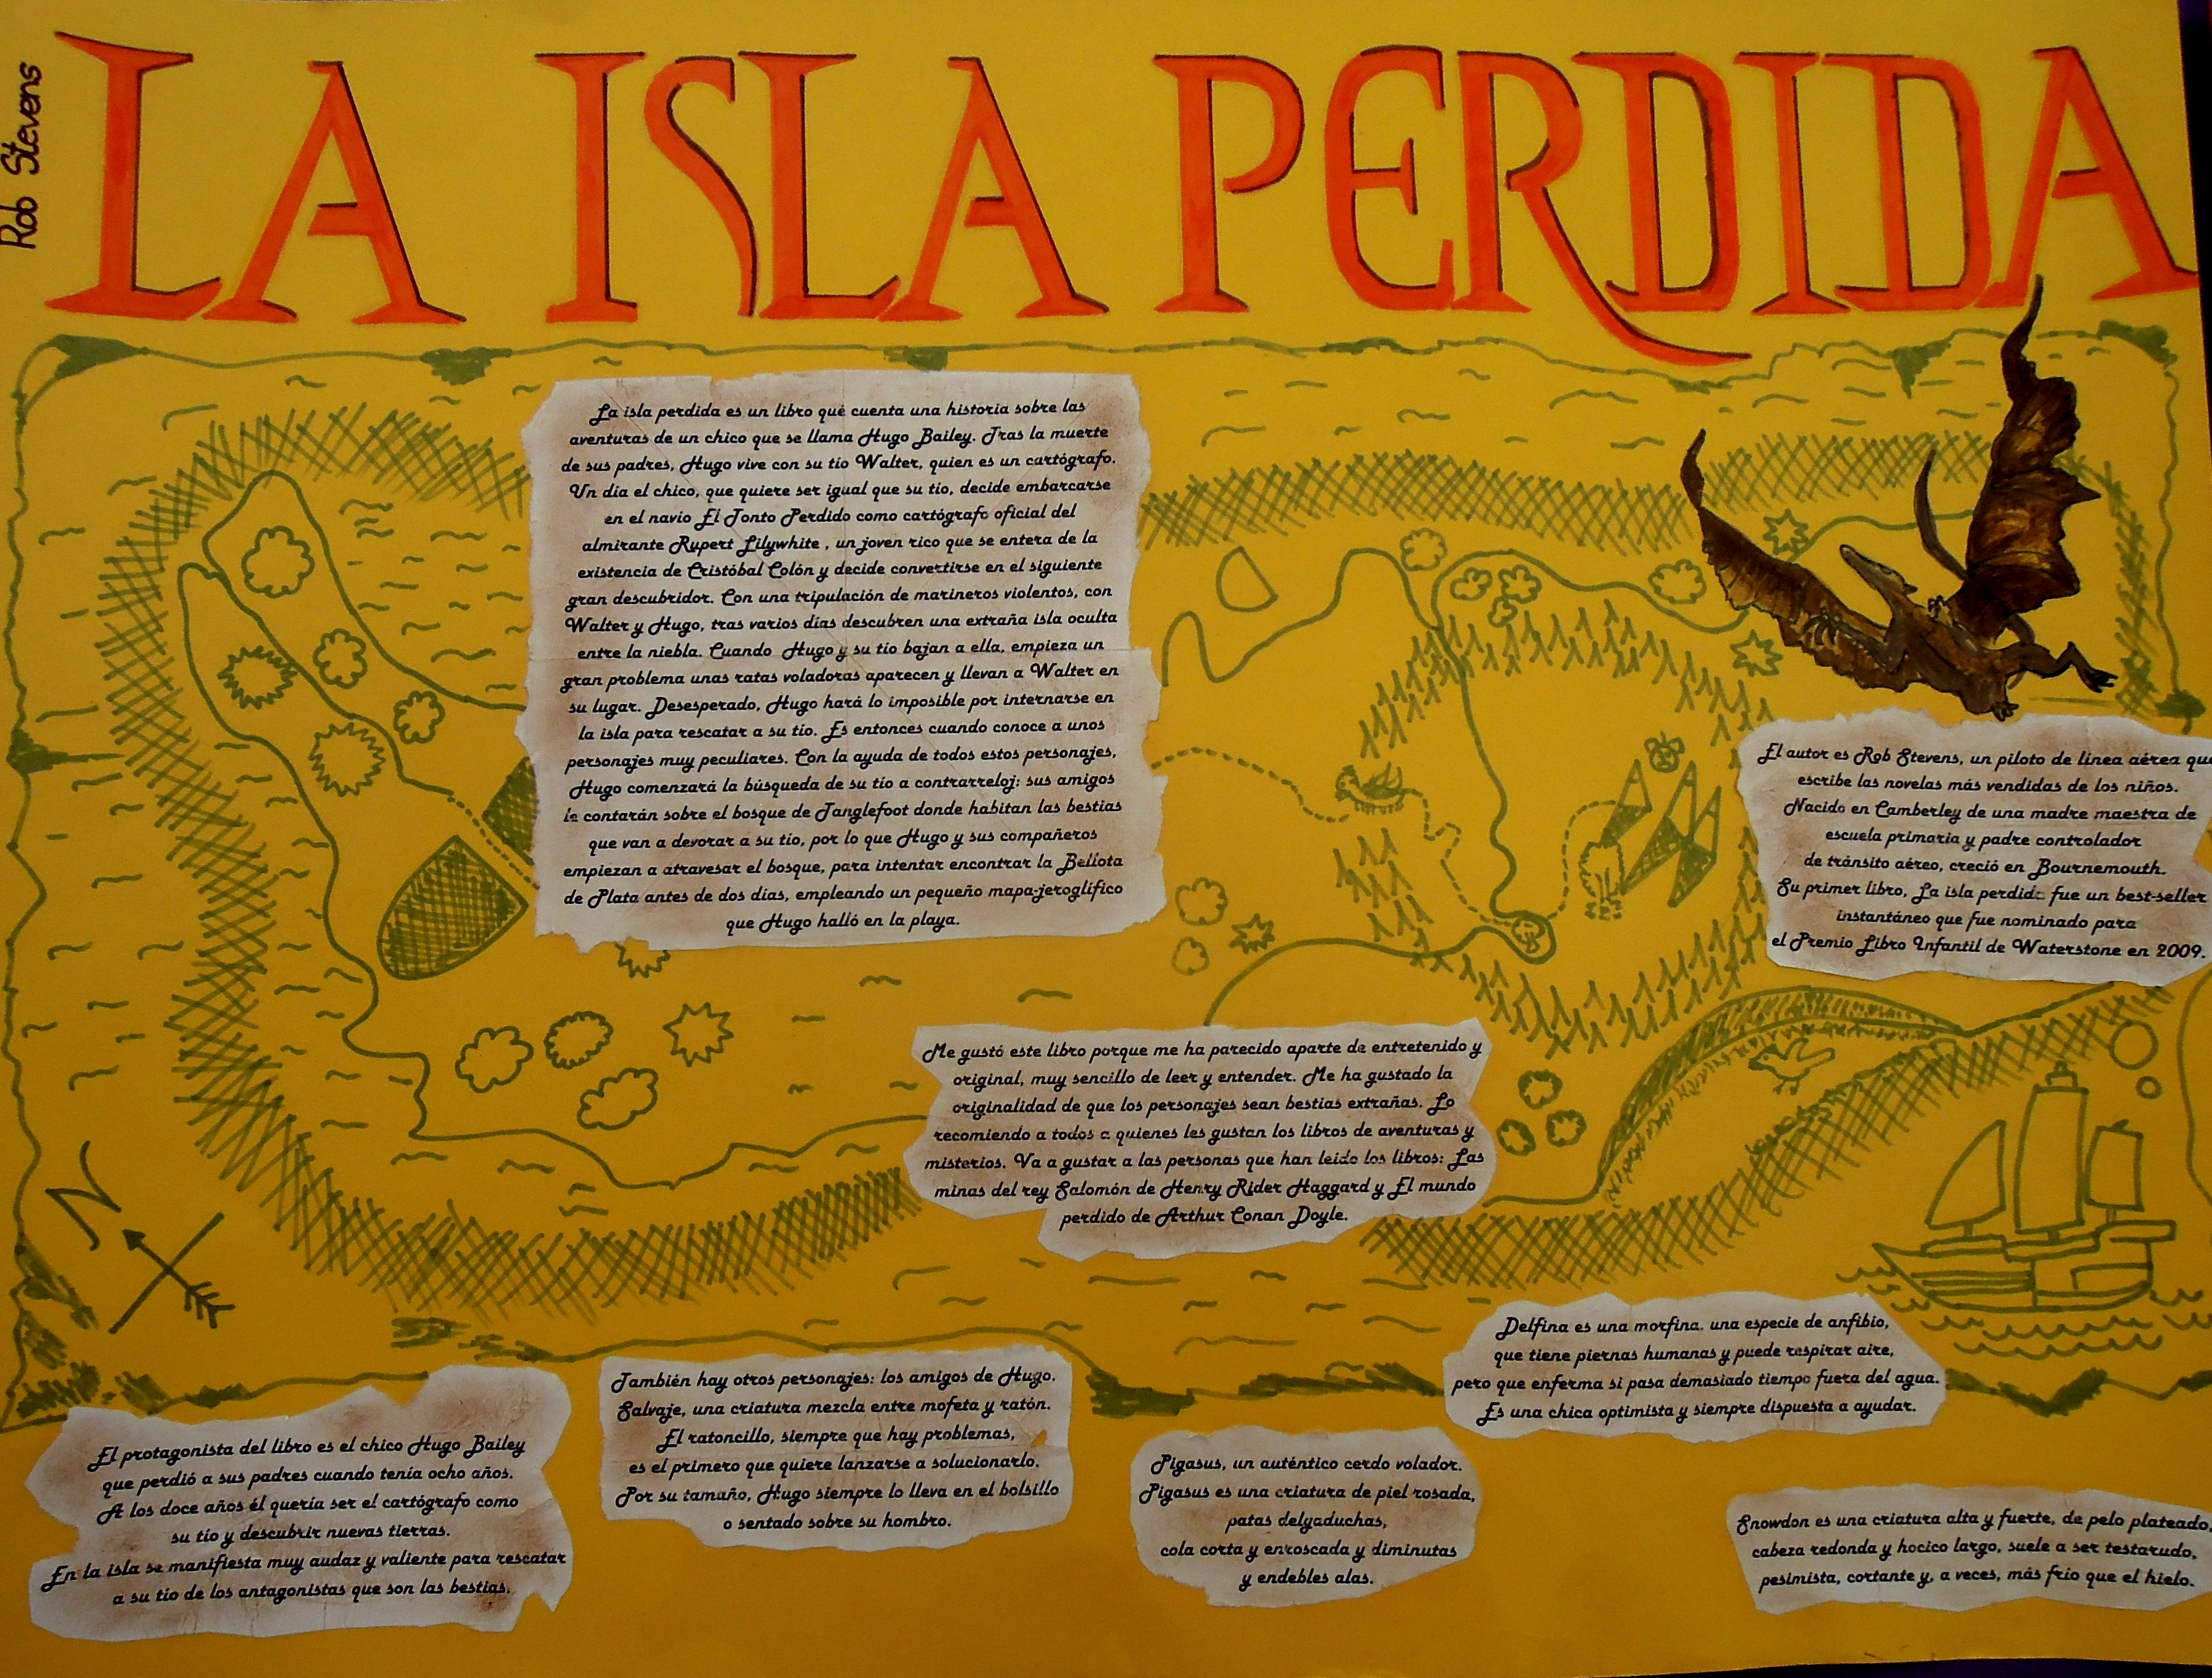 LA ISLA PERDIDA
Rob Stevens
La isla perdida es un libro qué cuenta una historia sobre las
aventuras de un chico que se llama Hugo Bailey. Tras la muerte
de sus padres, Hugo vive con su tío Walter, quien es un cartógrafo.
Un día el chico, que quiere ser igual que su tío, decide embarcarse
en el navío El Tonto Perdido como cartógrafo oficial del
almirante Rupert Lilywhite , un joven rico que se entera de la
existencia de Cristóbal Colón y decide convertirse en el siguiente
gran descubridor. Con una tripulación de marineros violentos, con
Walter y Hugo, tras varios días descubren una extraña isla oculta
entre la niebla. Cuando Hugo y su tío bajan a ella, empieza un
gran problema unas ratas voladoras aparecen y llevan a Walter en
su lugar. Desesperado, Hugo hará lo imposible por internarse en
la isla para rescatar a su tío. Es entonces cuando conoce a unos
personajes muy peculiares. Con la ayuda de todos estos personajes,
Hugo comenzará la búsqueda de su tío a contrarreloj: sus amigos
le contarán sobre el bosque de Tanglefoot donde habitan las bestias
que van a devorar a su tío, por lo que Hugo y sus compañeros
empiezan a atravesar el bosque, para intentar encontrar la Bellota
de Plata antes de dos días, empleando un pequeño mapa-jeroglífico
que Hugo halló en la playa.
El autor es Rob Stevens, un piloto de línea aérea que
escribe las novelas más vendidas de los niños.
Nacido en Camberley de una madre maestra de
escuela primaria y padre controlador
de tránsito aéreo, creció en Bournemouth.
Su primer libro, La isla perdida fue un best-seller
instantáneo que fue nominado para
el Premio Libro Infantil de Waterstone en 2009.
Me gustó este libro porque me ha parecido aparte de entretenido y
original, muy sencillo de leer y entender. Me ha gustado la
originalidad de que los personajes sean bestias extrañas. Lo
recomiendo a todos a quienes les gustan los libros de aventuras y
misterios. Va a gustar a las personas que han leído los libros: Las
minas del rey Salomón de Henry Rider Haggard y El mundo
perdido de Arthur Conan Doyle.
N
Delfina es una morfina, una especie de anfibio,
que tiene piernas humanas y puede respirar aire,
pero que enferma si pasa demasiado tiempo fuera del agua.
Es una chica optimista y siempre dispuesta a ayudar.
También hay otros personajes: los amigos de Hugo.
Salvaje, una criatura mezcla entre mofeta y ratón.
El ratoncillo, siempre que hay problemas,
es el primero que quiere lanzarse a solucionarlo.
Por su tamaño, Hugo siempre lo lleva en el bolsillo
o sentado sobre su hombro.
El protagonista del libro es el chico Hugo Bailey
que perdió a sus padres cuando tenía ocho años.
A los doce años él quería ser el cartógrafo como
su tío y descubrir nuevas tierras.
En la isla se manifiesta muy audaz y valiente para rescatar
a su tío de los antagonistas que son las bestias.
Pigasus, un auténtico cerdo volador.
Pigasus es una criatura de piel rosada,
patas delgaduchas,
cola corta y enroscada y diminutas
y endebles alas.
Snowdon es una criatura alta y fuerte, de pelo plateado,
cabeza redonda y hocico largo, suele a ser testarudo,
pesimista, cortante y, a veces, más frío que el hielo.